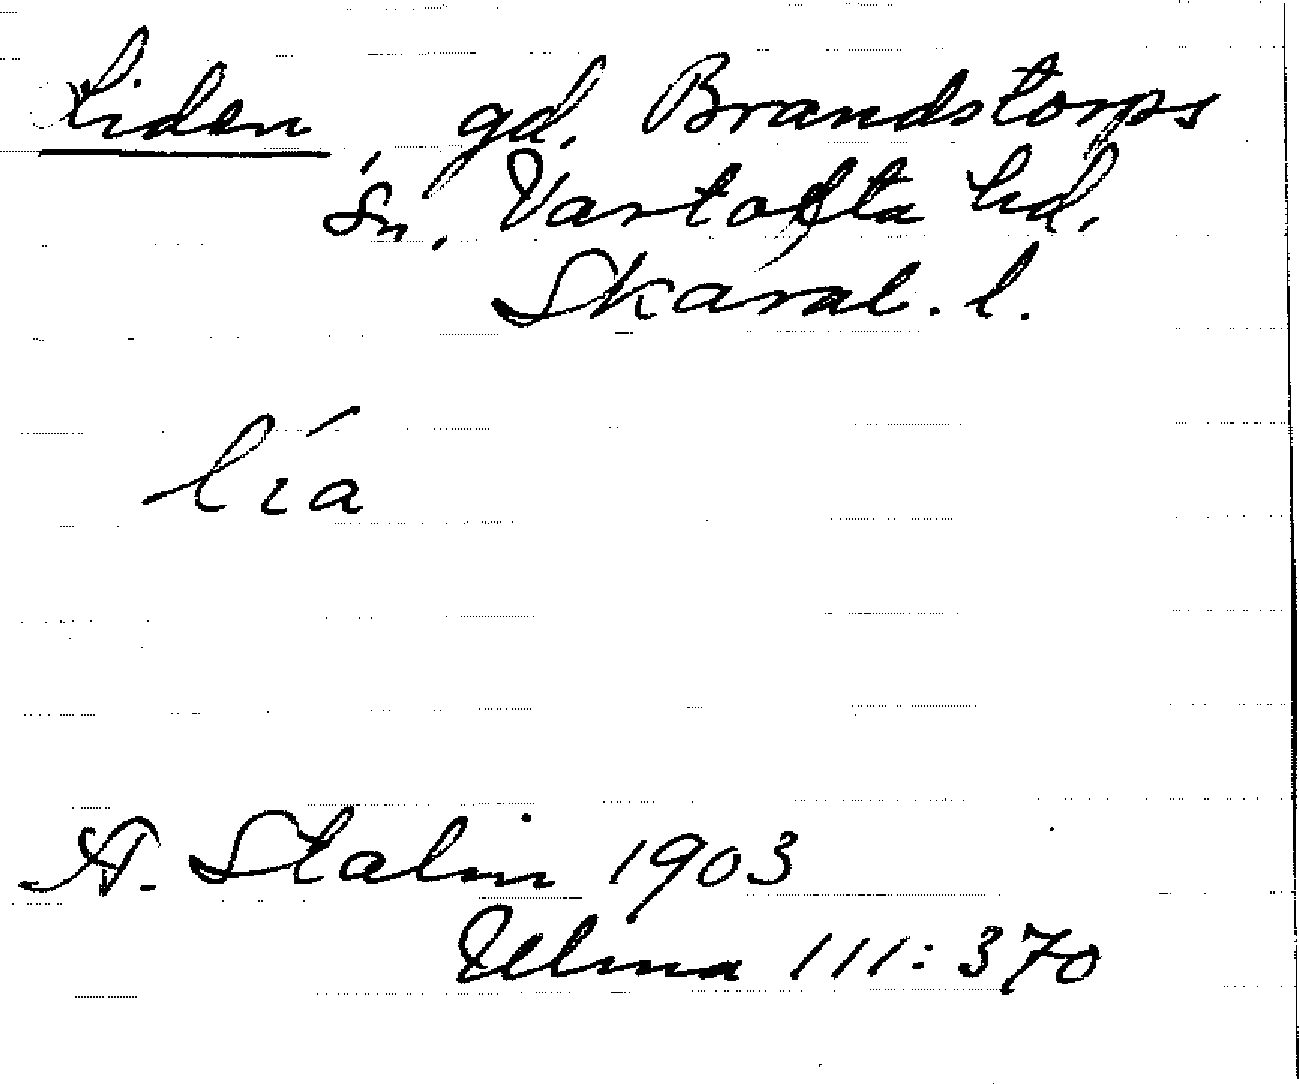 Liden, gd. Brandstorps
sn, Vartofta hd.
Skarab. l.
lía
A. Stalin 1903
Ulma 111:370